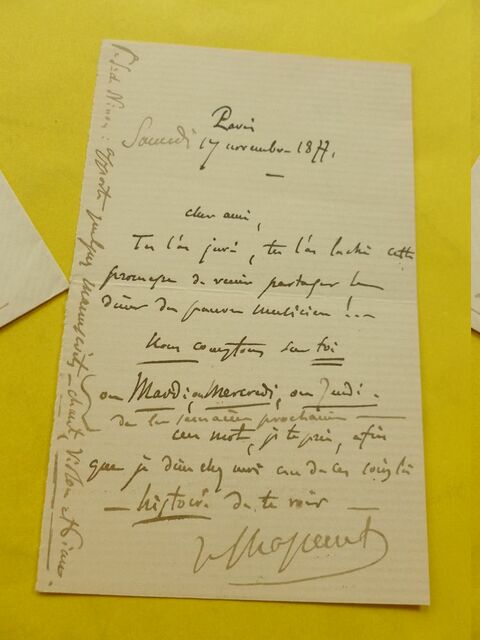 Paris
Samedi 17 novembre 1877.
cher ami,
Tu l'as juré, tu l'as lâché cette
promesse de venir partager le
dîner du pauvre musicien !..
Nous comptons sur toi
ou Mardi, ou Mercredi, ou Jeudi.
de la semaine prochaine
un mot, je te prie, afin
que je dîne chez moi un de ces jours là
— histoire de te voir —
apporte quelques manuscrits — chant, violon et piano